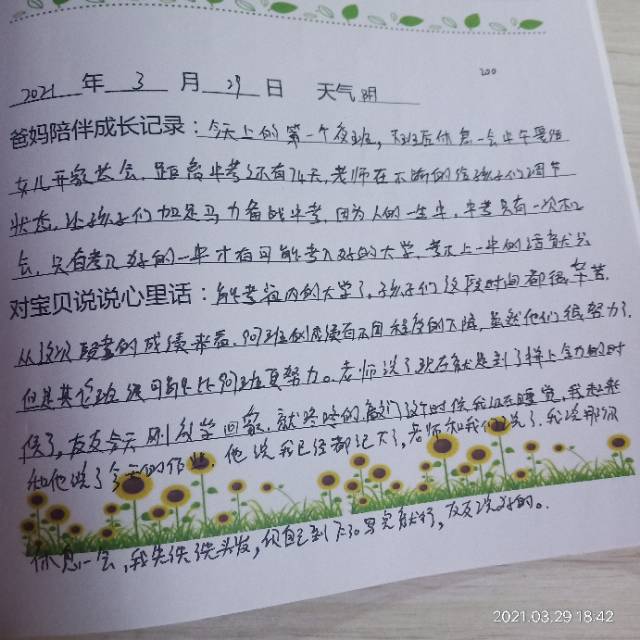 200
2021 年 3 月 29 日 天气 阴
爸妈陪伴成长记录：今天上的第一个夜班，下班后休息一会中午要给
女儿开家长会，距离中考还有74天，老师在不断的给孩子们调节
状态，让孩子们加足马力备战中考，因为人的一生中，中考只有一次机
会，只有考入好的一中才有可能考入好的大学，考不上一中的话就
对宝贝说说心里话：能考省内的大学了，孩子们这段时间都很辛苦，
从这次的成绩来看，阿班的成绩有不同程度的下降，虽然他们很努力了，
但是其他班级可能比阿班更努力。老师说了现在就是到了拼上全力的时
候了，友友今天刚放学回家，就咚咚的敲门这个时候我还在睡觉，我起来
和他说了今天的作业，他说我已经都记下了，老师和我们说了，我说那你
休息一会，我先洗洗头发，你自己到7:30写完就行，友友说好的。
2021.03.29 18:42